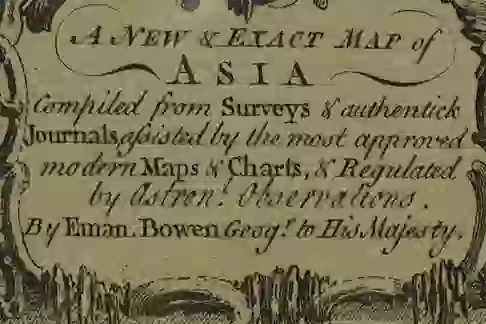 A NEW & EXACT MAP of
ASIA
Compiled from Surveys & authentick
Journals, aſsisted by the most approved
modern Maps & Charts, & Regulated
by Astron.l Observations.
By Eman. Bowen Geog.r to His Majesty.